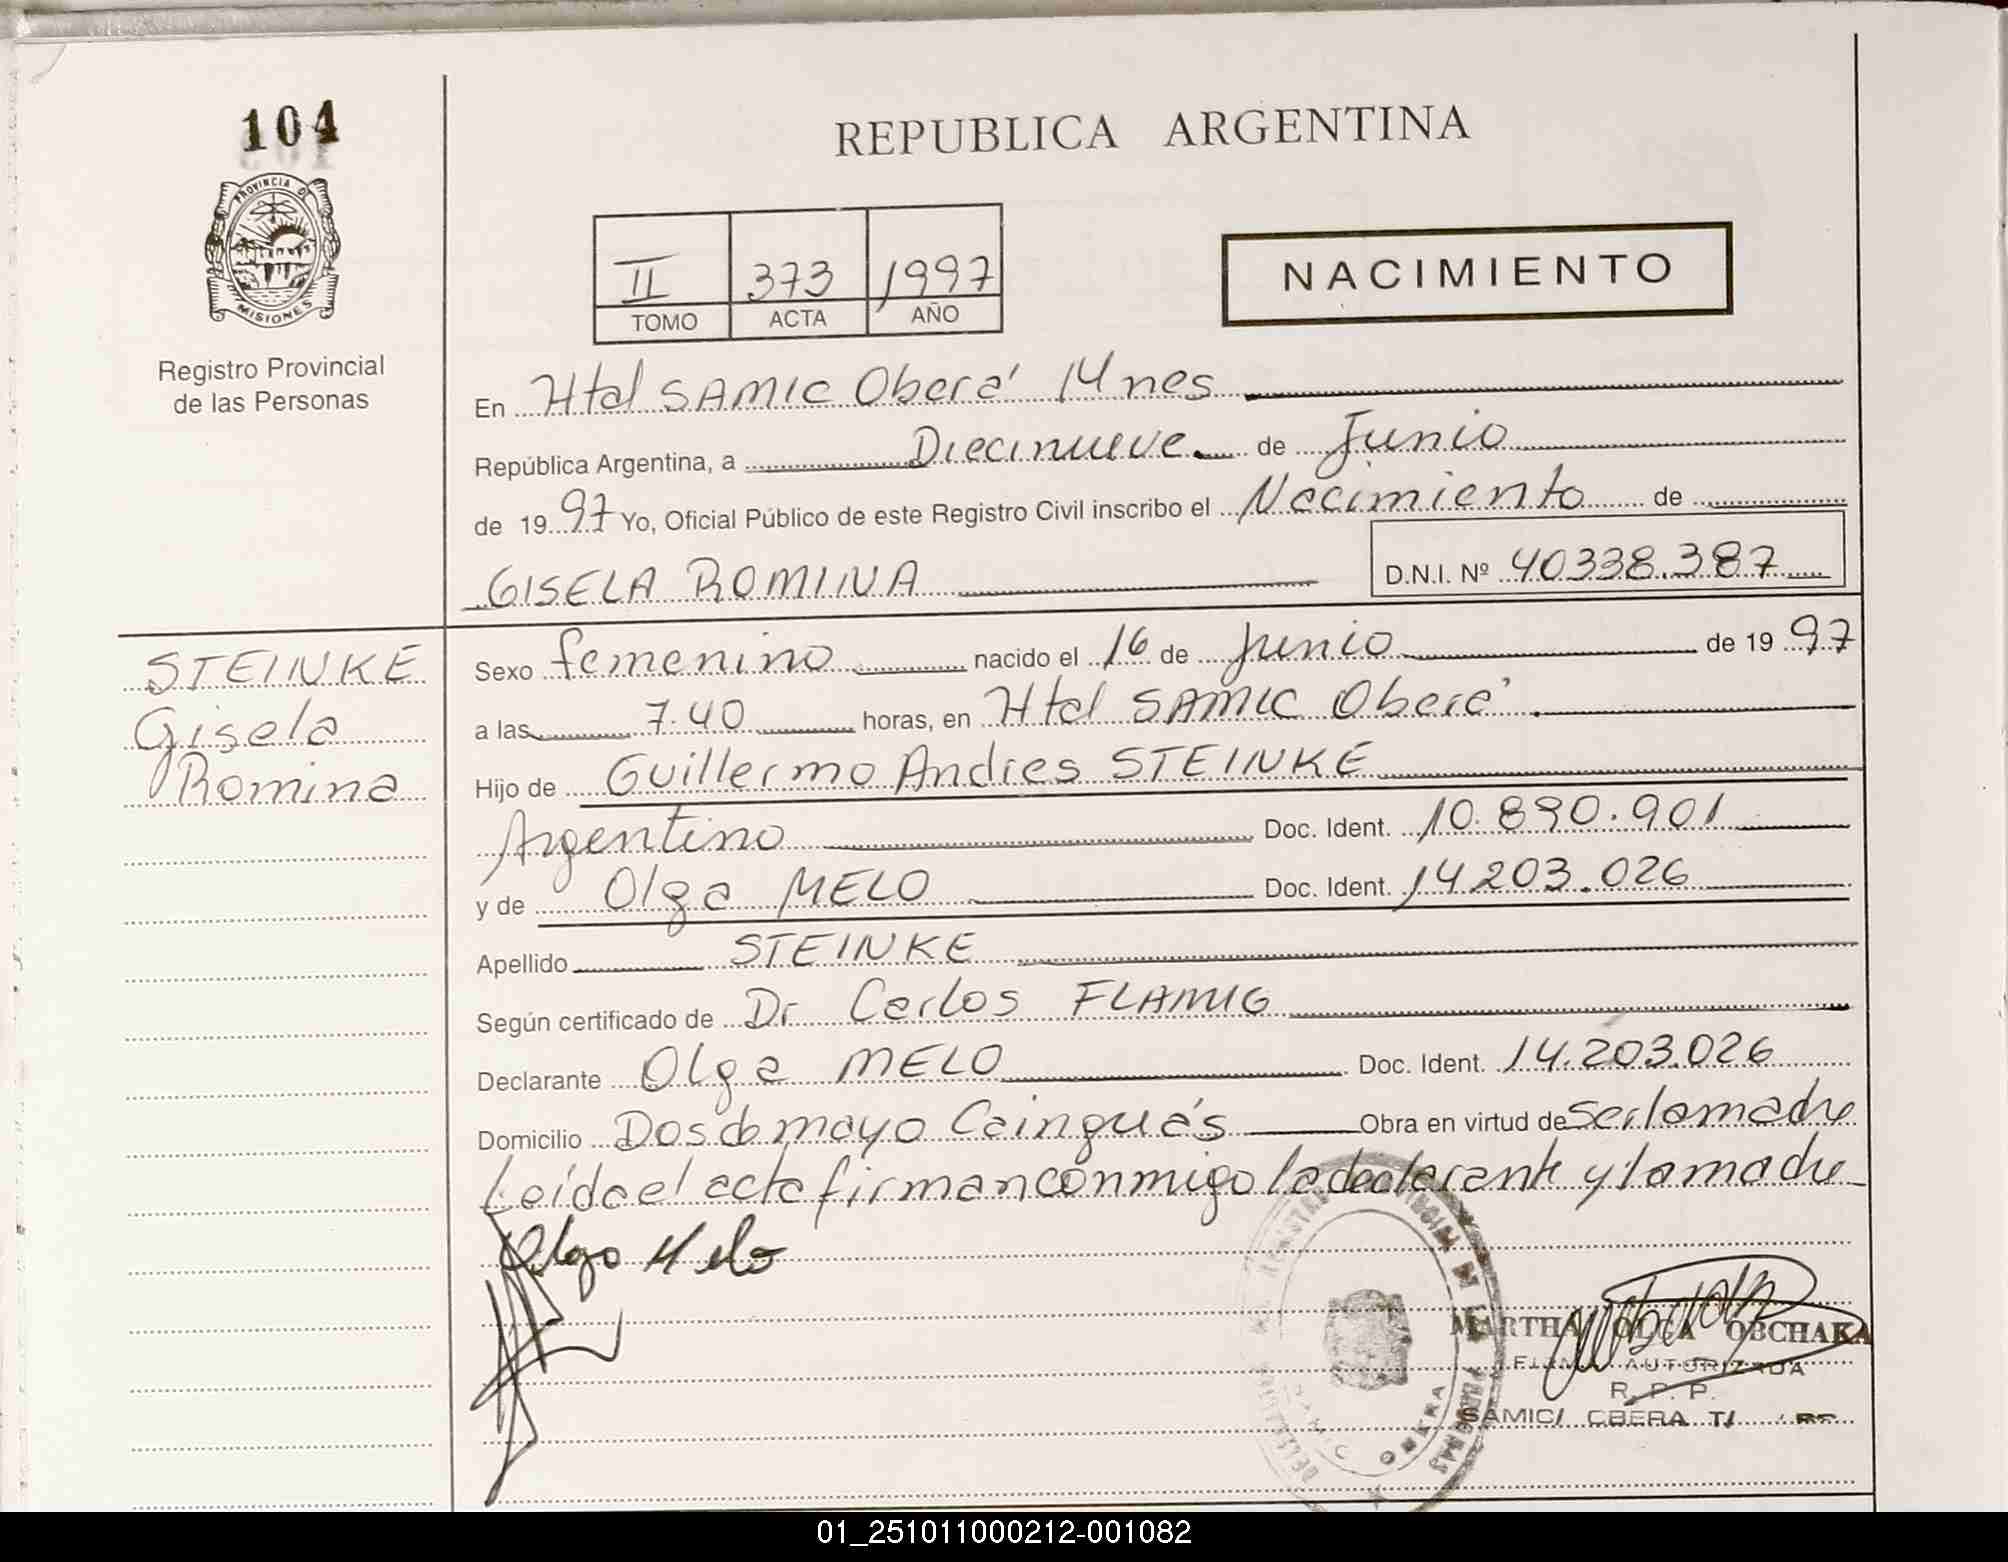 104
PROVINCIA DE
MISIONES
Registro Provincial
de las Personas
REPUBLICA ARGENTINA
II 373 1997
TOMO ACTA AÑO
NACIMIENTO
En Htal SAMIC Oberá Mnes
República Argentina, a Diecinueve de Junio
de 1997 Yo, Oficial Público de este Registro Civil inscribo el Nacimiento de
GISELA ROMINA D.N.I. Nº 40338.387
STEINKE
Gisela
Romina
Sexo femenino nacido el 16 de Junio de 1997
a las 7.40 horas, en Htal SAMIC Oberá
Hijo de Guillermo Andres STEINKE
Argentino Doc. Ident. 10.890.901
y de Olga MELO Doc. Ident. 14203.026
Apellido STEINKE
Según certificado de Dr Carlos FLAMIG
Declarante Olga MELO Doc. Ident. 14.203.026
Domicilio Dos de mayo Cainguás Obra en virtud de ser la madre
Leída el acta firman conmigo la declarante y la madre
Olga Melo
MARTHA OLGA OBCHAKA
FIRMA AUTORIZADA
R. P. P.
SAMIC/ OBERA
01_251011000212-001082